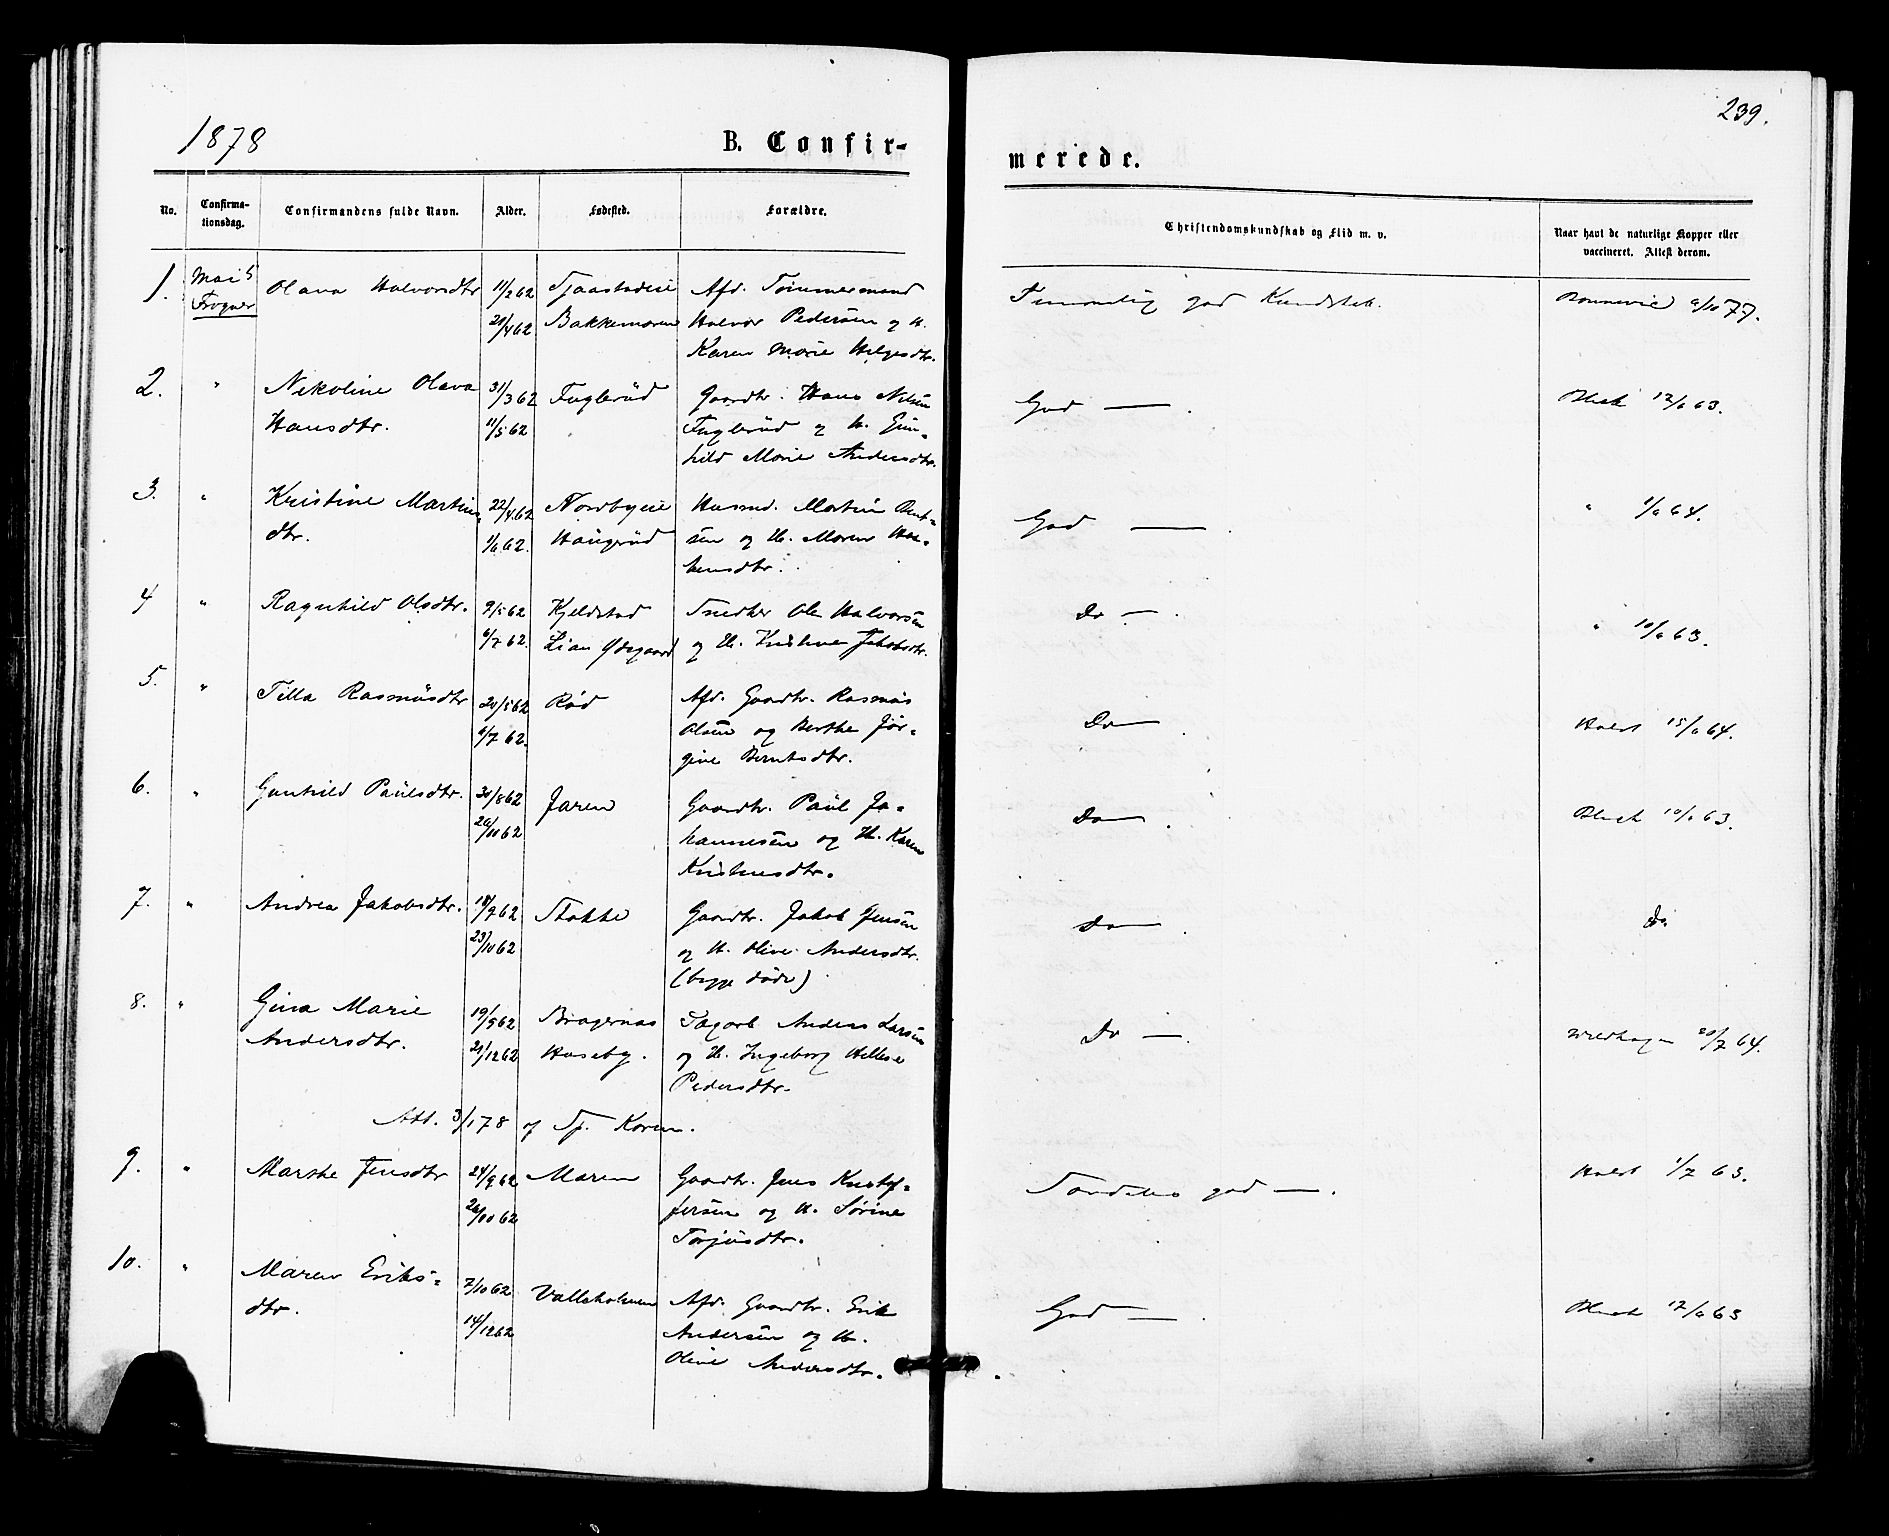 239.
1878
B. Confir-
merede.
No.
Confirma-
tionsdag.
Confirmandens fulde Navn.
Alder.
Fødested.
Forældre.
Christendomskundskab og Flid m. v.
Naar havt de naturlige Kopper eller
vaccineret. Attest derom.
1. Mai 5 Olava Halvorsdtr 11/2 62 Afd. Tømmermand Temmelig god Kundskab. 9/10 77.
Frogner 20/4 62 Bakkemoren Halvor Pedersen og H.
Karen Marie Helgesdtr.
2. " Nikoline Olava 31/3 62 Fuglerud Gaardbr. Hans Nilsen God — . Blich 12/6 63.
Hansdtr. 11/5 62 Fuglerud og H. Gun-
hild Marie Andersdtr.
3. " Kristine Martins- 22/4 62 Nordbyeie Husmd. Martin God — . " 1/6 64.
dtr. 1/6 62. Haugerud sen og H. Maren
4 " Ragnhild Olsdtr. 9/5 62 Kjeldstad Snedker Ole Halvorsen Do — . " 10/6 63.
6/7 62. Lian Ødegaard og H. Kristine Jakobsdtr.
5. " Tilla Rasmusdtr 20/5 62 Rød Afd. Gaardbr. Rasmus Do — Holst 15/6 64.
6/7 62. Olsen og Berthe Jør-
gine Berntsdtr.
6. " Gunhild Paulsdtr. 30/8 62 Jaren Gaardbr. Paul Jo- Do — . Blich 10/6 63.
26/10 62 hannesen og H. Karen
Kristiansdtr.
7. " Andrea Jakobsdtr. 18/9 62 Stokke Gaardbr. Jakob Jensen Do — . Do
23/10 62 og H. Olive Andersdtr.
(begge døde)
8. " Gina Marie 19/9 62 Bragernæs Dagarb. Anders Larsen Do — . 20/7 64.
Andersdtr. 21/12 62 Huseby. og H. Ingeborg Helene
Pedersdtr.
Att. 3/1 78 af Sp. Koren.
9. " Marthe Jensdtr 24/9 62 Maren Gaardbr. Jens Kristof- Særdeles god — . Holst 1/7 63.
26/10 62 fersen og H. Sørine
Torjusdtr.
10. " Maren Eriks- 7/10 62 Valleholmen Afd. Gaardbr. Erik God — . Blich 12/6 63
dtr. 14/12 62 Andersen og H.
Oline Andersdtr.